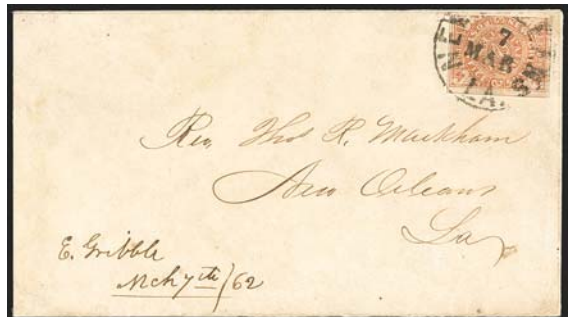 NEW
7
MAR
LA.
Rev Thos R. Markham
New Orleans
La
E. Gribble
Mch 7th / 62